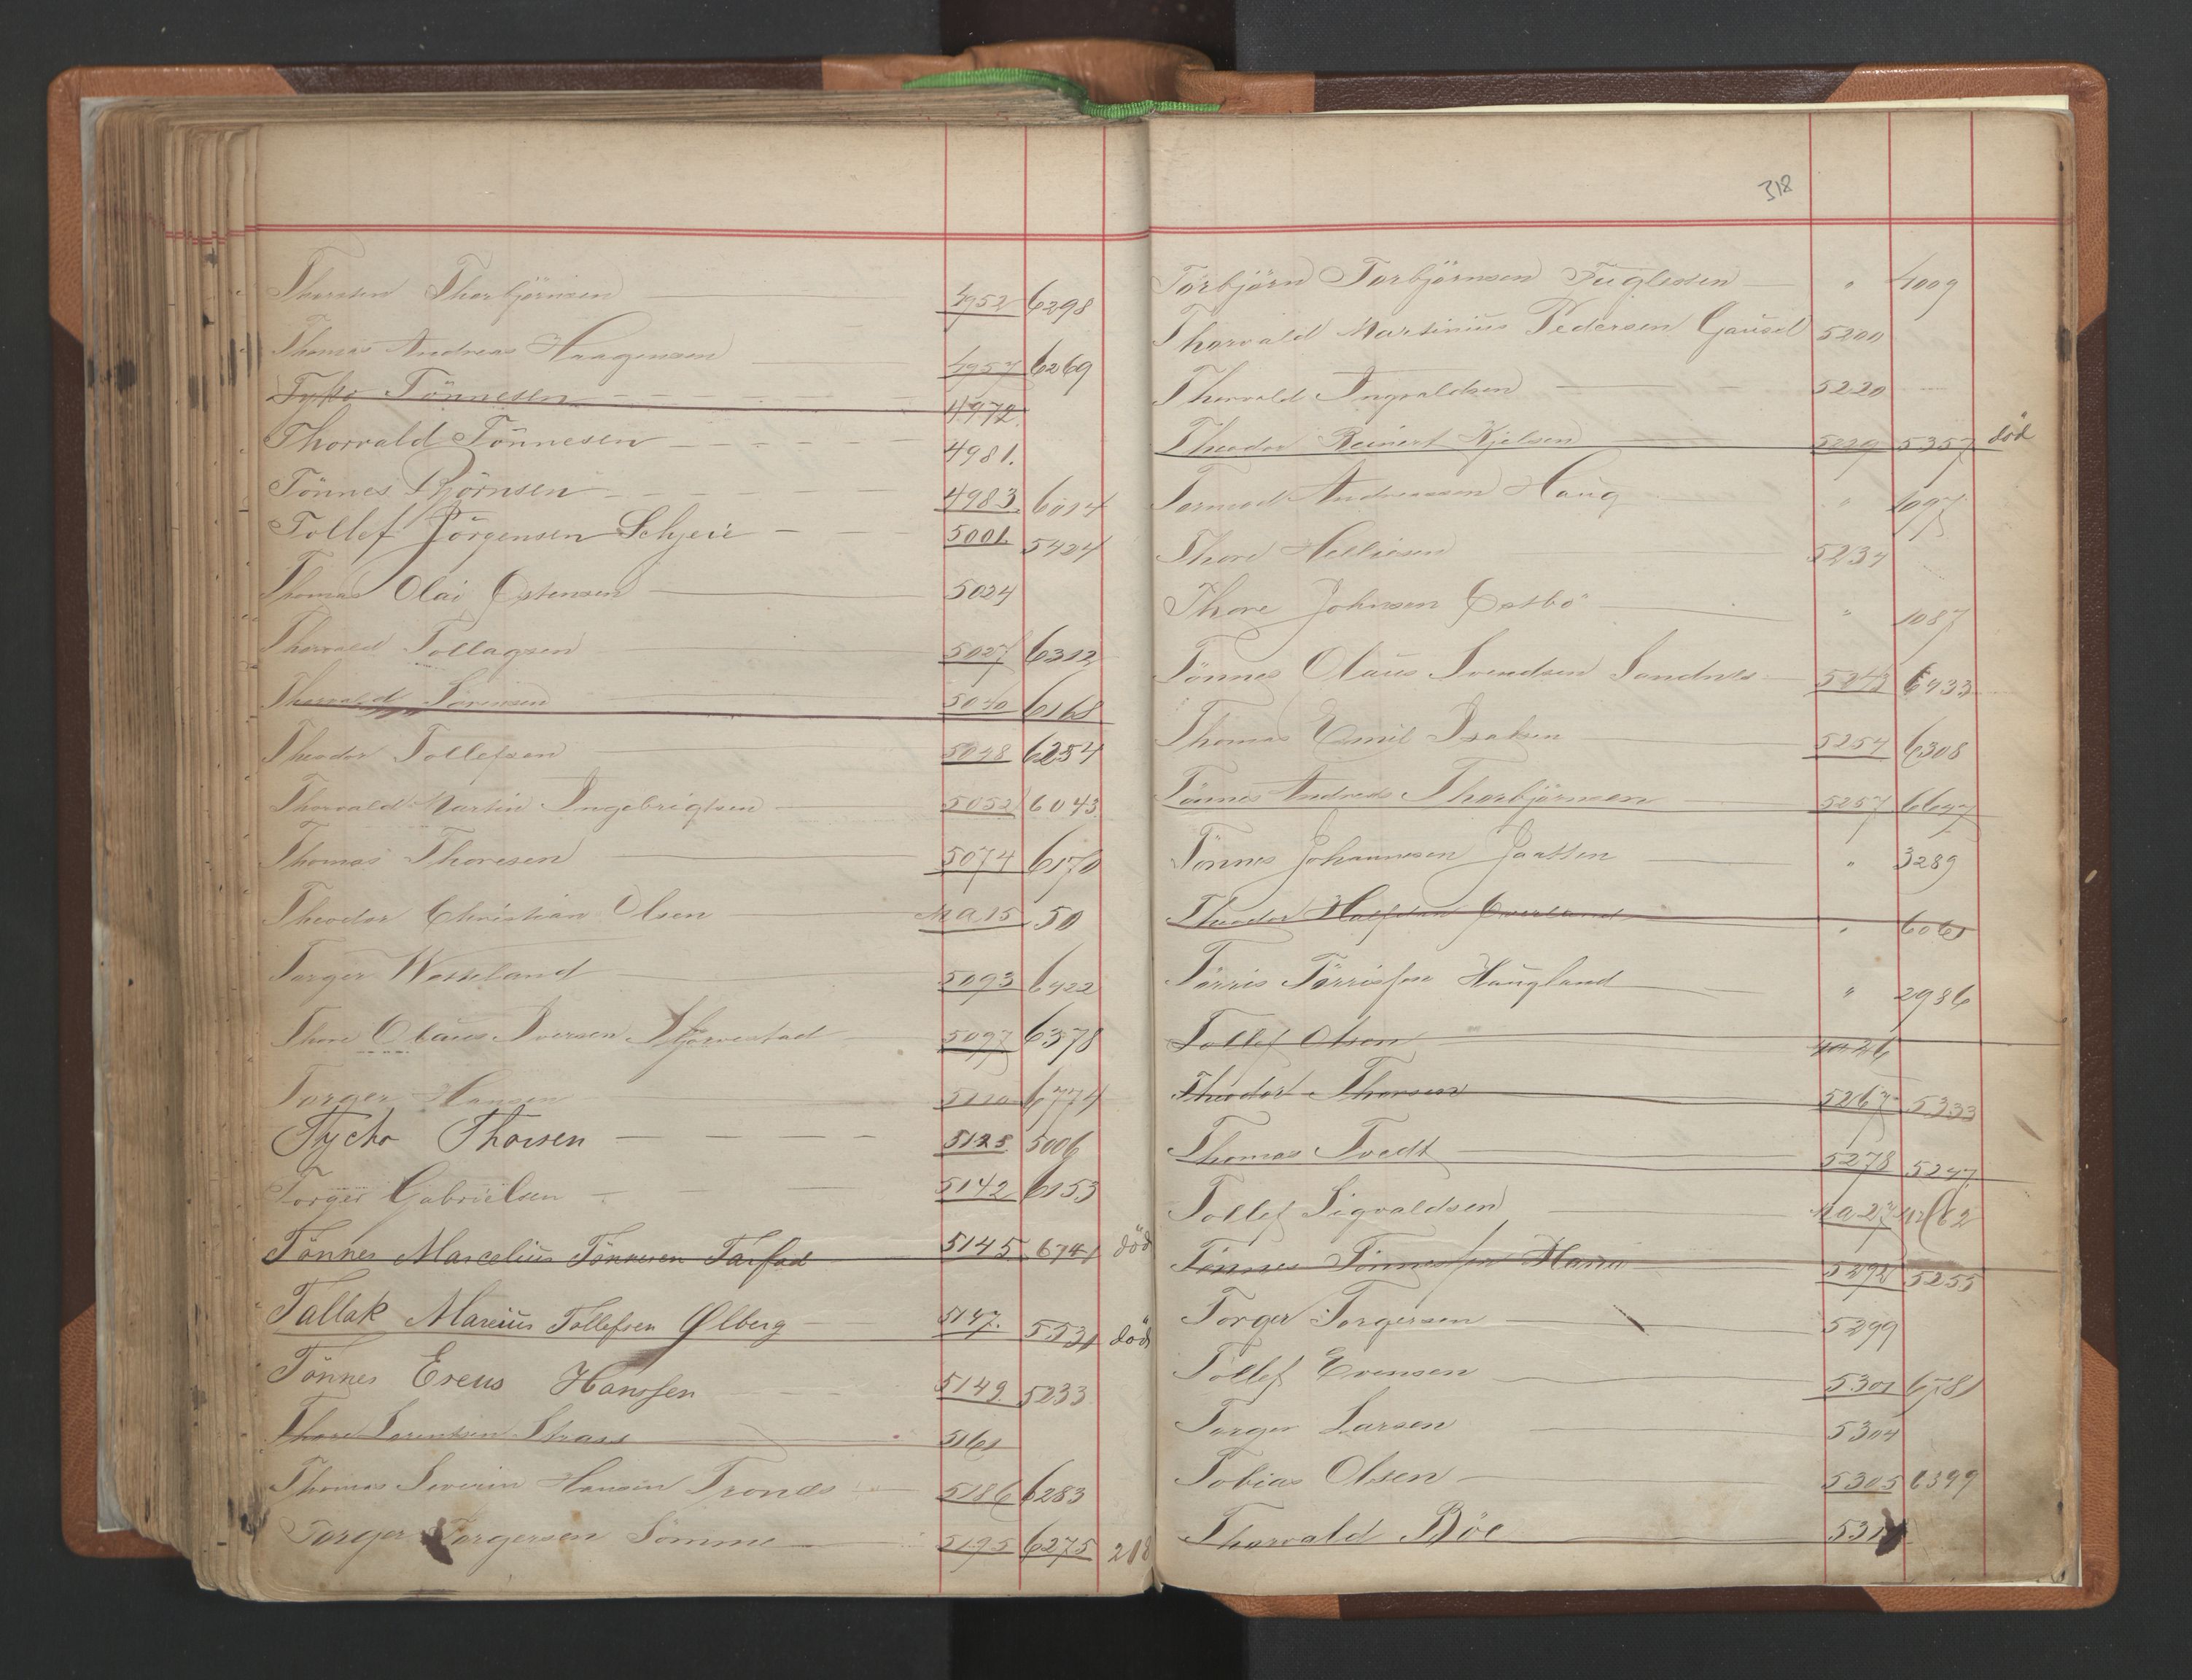 Thorsten Thorbjörnsen 4952 6298
Thomas Andreas Haagensen 4957 6269
Tyko Tönnesen 4972.
Thorvald Tönnesen 4981.
Tönnes Björnsen 4983. 6014
Tollef Jörgensen Schjeie 5001. 5424
Thomas Olai Östensen 5024
Thorvald Tollagsen 5027 6312
Thorvald Sörensen 5040 6168
Theodor Tollefsen 5048 6254
Thorvald Martin Ingebrigtsen 5052 6043
Thomas Thoresen 5074 6170
Theodor Christian Olsen Na 15 50
Torger Wasseland 5093 6422
Thore Olaus Iversen 5097 6378
Torger Hansen 5120 6774
Tycho Thorsen 5128 5006
Torger Gabrielsen 5142 6153
Tönnes Marcelius Tönnesen 5145 6741 död
Tallak Marius Tollefsen Ølberg 5147. 5531 död
Tönnes Ereus Hansen 5149. 5233
Thore Lorentsen 5161
Thomas Severin Hansen Tronds 5186 6283
Torger Torgersen Sömme 5195 6275 218
318
Torbjörn Torbjörnsen Fuglesten " 4009
Thorvald Martinius Pedersen Gausel 5200
Thorvald Ingvaldsen 5220
Theodor Reinert Kjelsen 5229 5357 död
Tormod Andreassen Haug "
Thore Hellisen 5234
Thore Johnsen Östbö " 1087
Tönnes Olaus Svendsen Sandnes 5243 6433
Thomas Emil Isaksen 5254 6308
Tönnes Andreas Thorbjörnsen 5257 6647
Tönnes Johannesen Jaatten " 3289
Theodor Halfdan " 6061
Törris Törrisson Haugland " 2986
Tollef Olsen
Theodor Thorsen 5267 5333
Thomas Tvedt 5278 5247.
Tollef Sigvaldsen Na 27
Tönnes Tönnessen 5292 5255
Torger Torgersen 5299
Tollef Evensen 5301 6781
Torger Larsen 5304
Tobias Olsen 5305 6399
Thorvald Böe